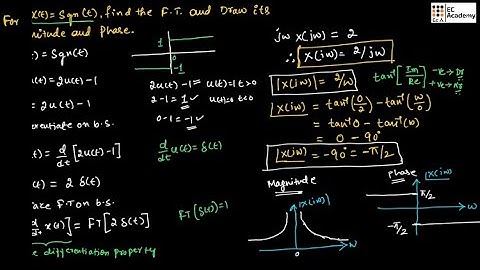 For x(t) = Sgn(t), find the F.T. and Draw its
nitude and phase.
) = Sgn(t)
(t) = 2u(t) - 1
= 2u(t) - 1
erentiate on b.s.
t) = d/dt [2u(t) - 1]
(t) = 2 δ(t)
ake FT on b.s.
d/dt x(t)] = FT[2 δ(t)]
e differentiation property
1
0
-1
2u(t) - 1 = u(t) = 1 t > 0
2 - 1 = 1 ✓ u(t) = 0 t < 0
0 - 1 = -1 ✓
d/dt u(t) = δ(t)
FT[δ(t)] = 1
EC Academy
ECA
jω X(jω) = 2
∴ X(jω) = 2/jω
|X(jω)| = 2/ω
tan⁻¹[Im/Re]
-ve → Dr
+ve → Nr
∠X(jω) = tan⁻¹(0/2) - tan⁻¹(ω/0)
= tan⁻¹0 - tan⁻¹(∞)
= 0 - 90°
∠X(jω) = -90° = -π/2
Magnitude
|X(jω)|
0
ω
Phase
∠X(jω)
π/2
-π/2
ω